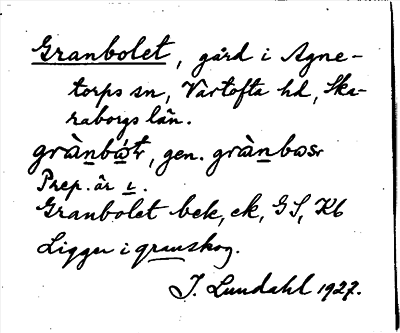 Granbolet, gård i Agne-
torps sn, Vartofta hd, Ska-
raborgs län.
gen.
Prep. är ɩ.
Granbolet bek, ek, GS, Kb
Ligger i granskog.
J. Lundahl 1927.